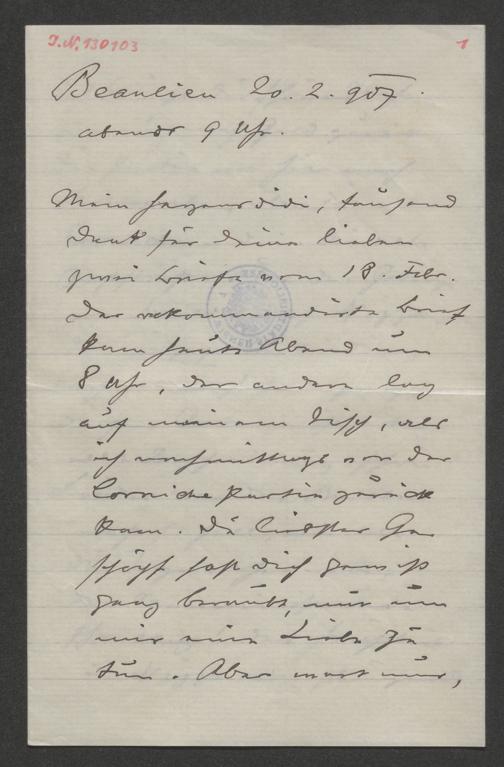 J.N. 130103
1
Beaulieu 20. 2. 907.
abends 9 Uhr.
Mein herzensdidi, tausend
Dank für Deine lieben
zwei Briefe vom 18. Febr.
Der rekommandirte Brief
kam heute Abend um
8 Uhr, der andere lag
auf meinem Tisch, als
ich nachmittags von der
Corniche Partie zurück
kam. Du liebstes Ge
schöpf hast Dich gewiß
ganz beraubt, nur um
mir eine Liebe zu
tun. Aber wart nur,